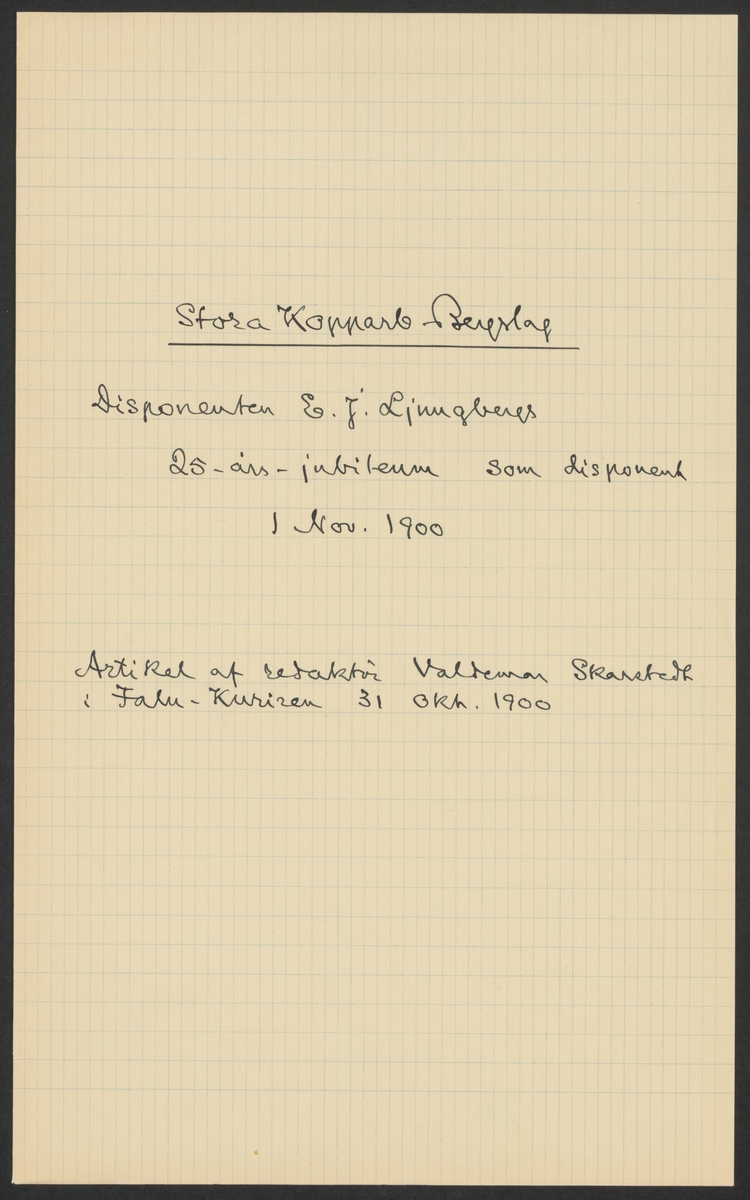 Stora Kopparb Bergslag
Disponenten E. J. Ljungbergs
25-års-jubileum som disponent
1 Nov. 1900
Artikel af redaktör Valdemar Skarstedt
i Falu-Kuriren 31 Okt. 1900